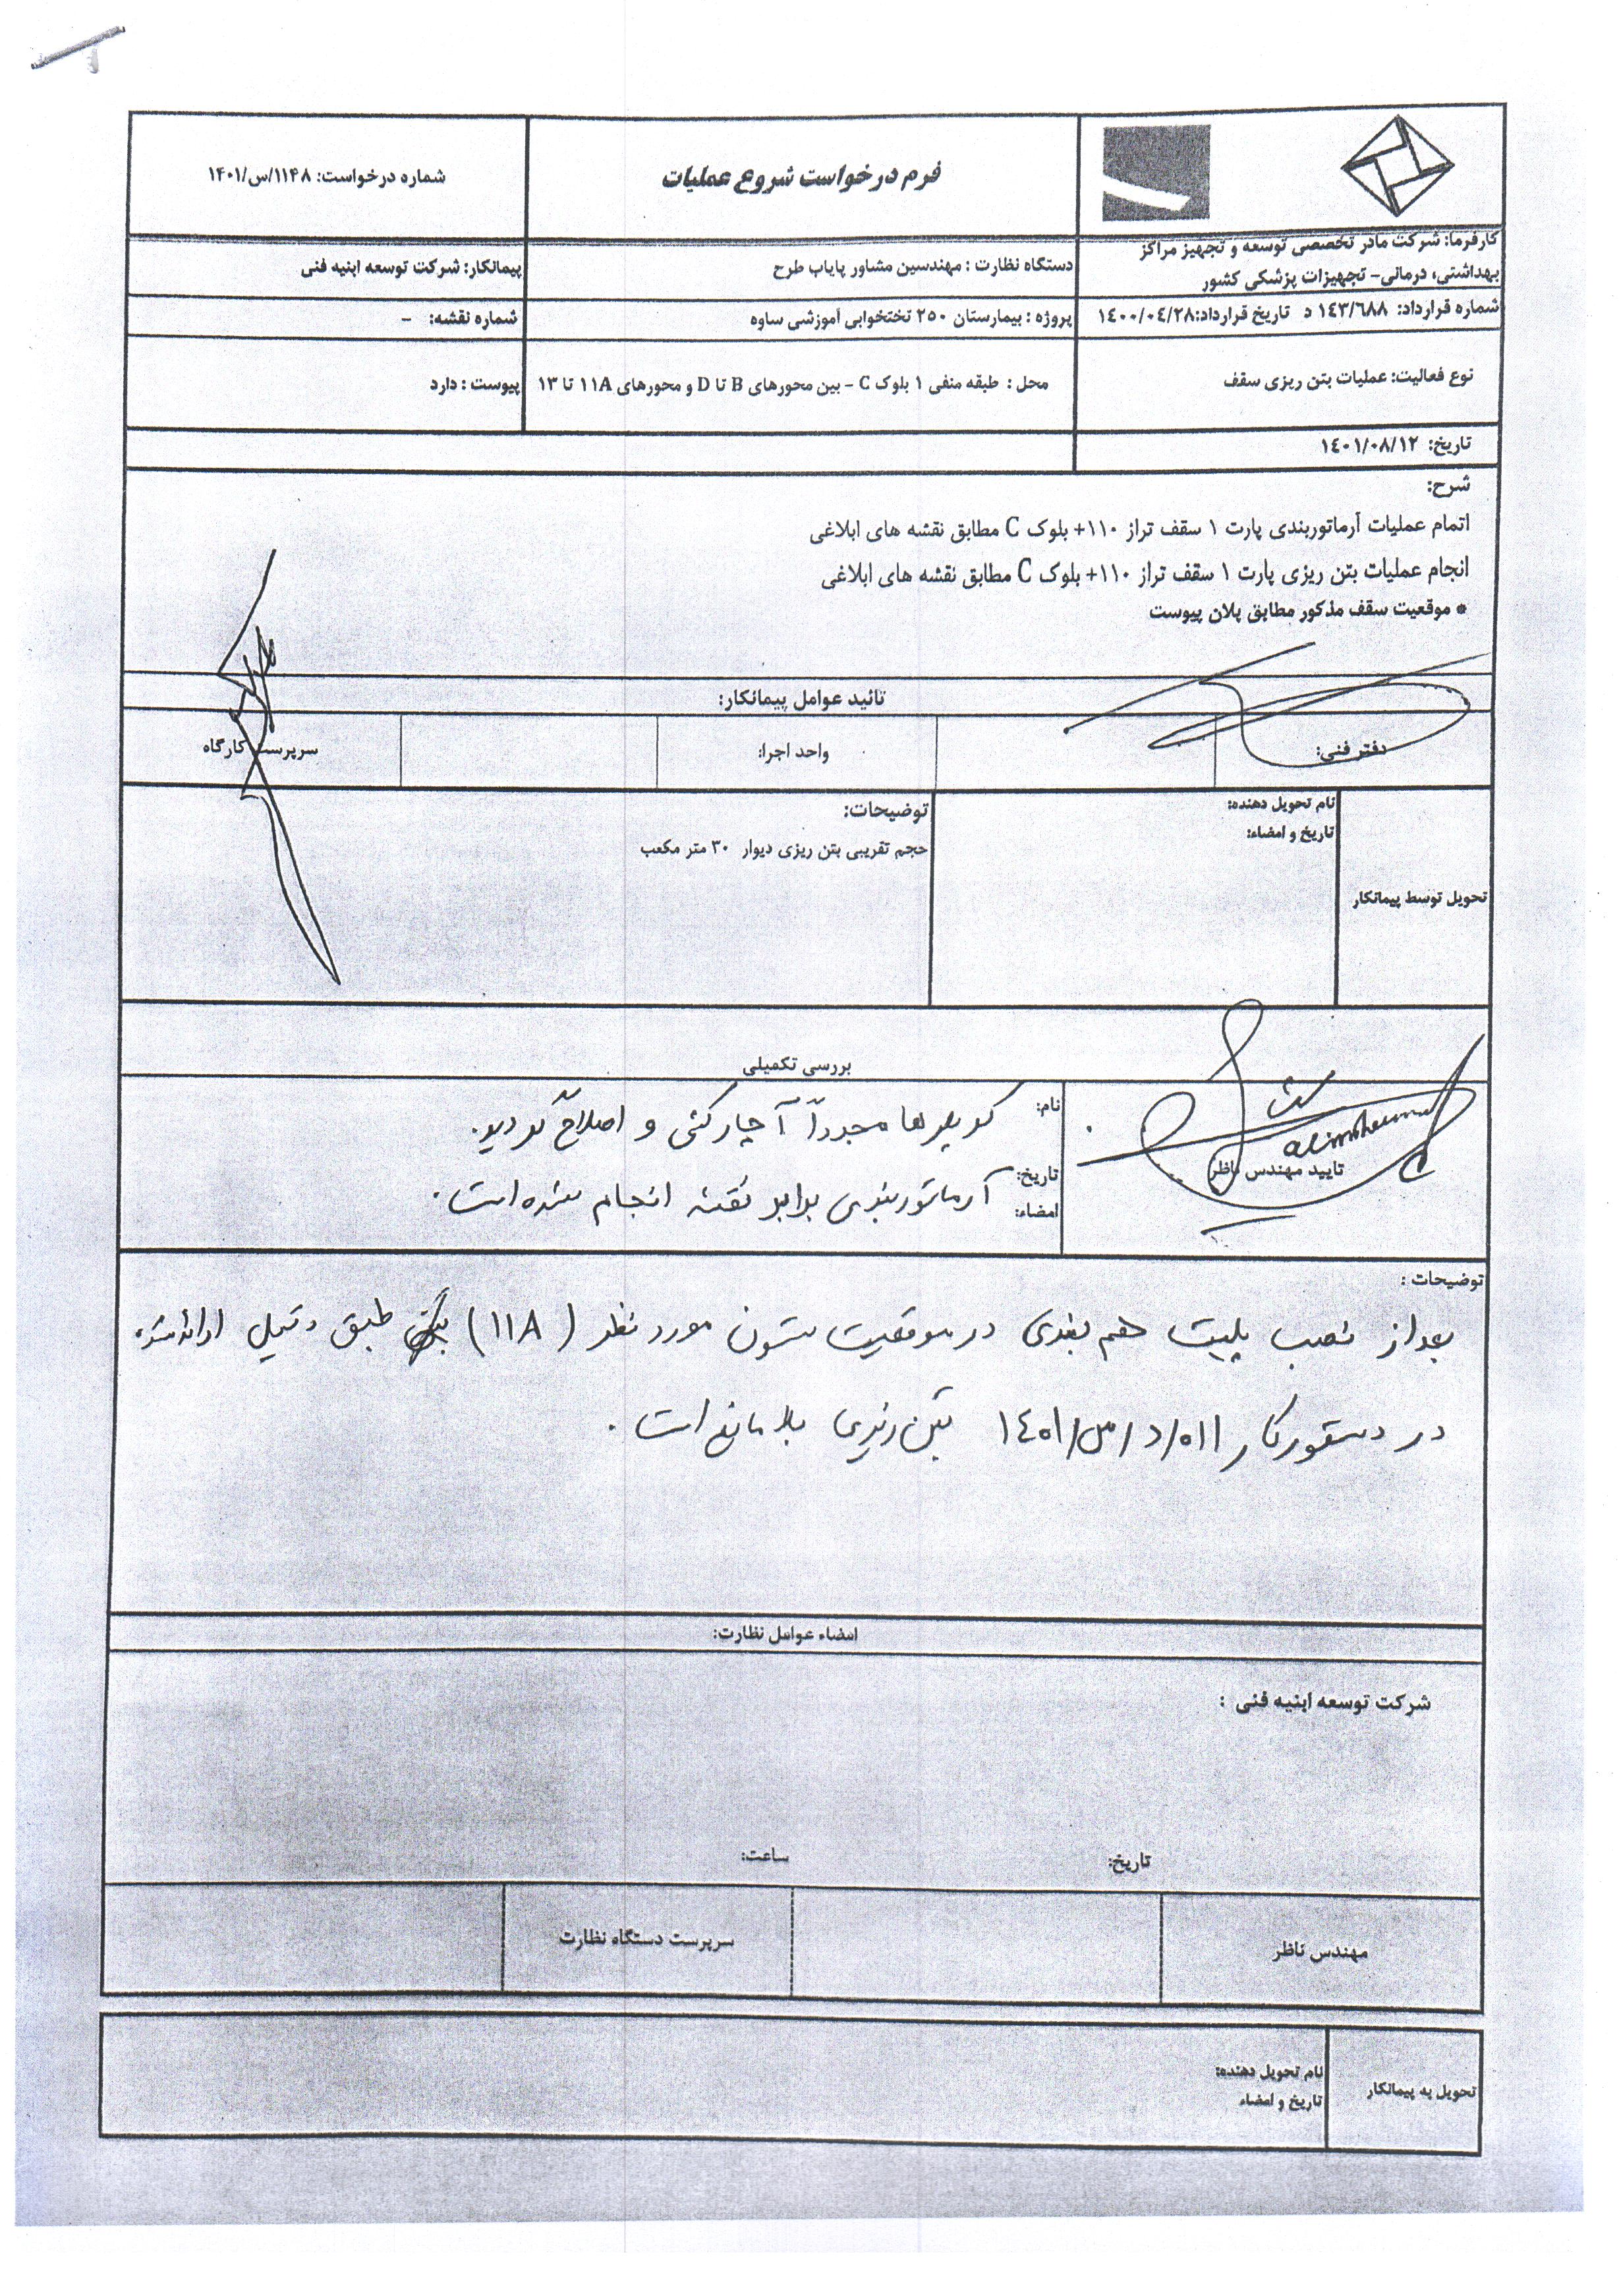 فرم درخواست شروع عملیات
شماره درخواست: ۱۱۴۸/س/۱۴۰۱
کارفرما: شرکت مادر تخصصی توسعه و تجهیز مراکز
بهداشتی، درمانی- تجهیزات پزشکی کشور
دستگاه نظارت : مهندسین مشاور پایاب طرح
پیمانکار: شرکت توسعه ابنیه فنی
شماره قرارداد: ۱۴۳/۶۸۸ د تاریخ قرارداد:۱۴۰۰/۰۴/۲۸
پروژه : بیمارستان ۲۵۰ تختخوابی آموزشی ساوه
شماره نقشه: -
نوع فعالیت: عملیات بتن ریزی سقف
محل : طبقه منفی ۱ بلوک C - بین محورهای B تا D و محورهای ۱۱A تا ۱۳
پیوست : دارد
تاریخ: ۱۴۰۱/۰۸/۱۲
شرح:
اتمام عملیات آرماتوربندی پارت ۱ سقف تراز ۱۱۰+ بلوک C مطابق نقشه های ابلاغی
انجام عملیات بتن ریزی پارت ۱ سقف تراز ۱۱۰+ بلوک C مطابق نقشه های ابلاغی
* موقعیت سقف مذکور مطابق پلان پیوست
تائید عوامل پیمانکار:
دفتر فنی:
واحد اجرا:
سرپرست کارگاه
تحویل توسط پیمانکار
نام تحویل دهنده:
تاریخ و امضاء:
توضیحات:
حجم تقریبی بتن ریزی دیوار ۳۰ متر مکعب
بررسی تکمیلی
تایید مهندس ناظر
نام:
کوپلرها مجدداً آچارکشی و اصلاح گردید.
تاریخ:
امضاء:
آرماتوربندی برابر نقشه انجام شده است.
توضیحات :
بعد از نصب پلیت هم بندی در موقعیت ستون مورد نظر (۱۱A) طبق دتیل ارائه شده
در دستورکار ۰۱۱/د/س/۱۴۰۱ بتن ریزی بلامانع است.
امضاء عوامل نظارت:
شرکت توسعه ابنیه فنی :
تاریخ:
ساعت:
مهندس ناظر
سرپرست دستگاه نظارت
تحویل به پیمانکار
نام تحویل دهنده:
تاریخ و امضاء